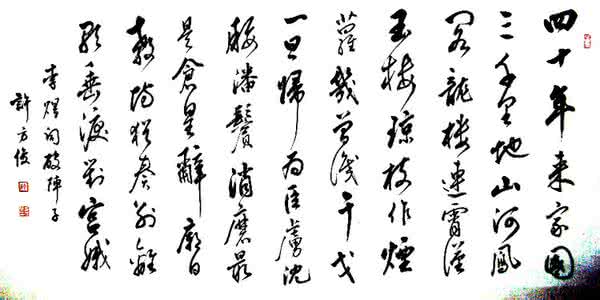 四十年来家國
三千里地山河鳳
閣龍樓連霄漢
玉樹瓊枝作煙
蘿幾曾識干戈
一旦歸為臣虜沈
腰潘鬢消磨最
是倉皇辭廟日
教坊猶奏別離
歌垂淚對宮娥
李煜詞破陣子
許方俊